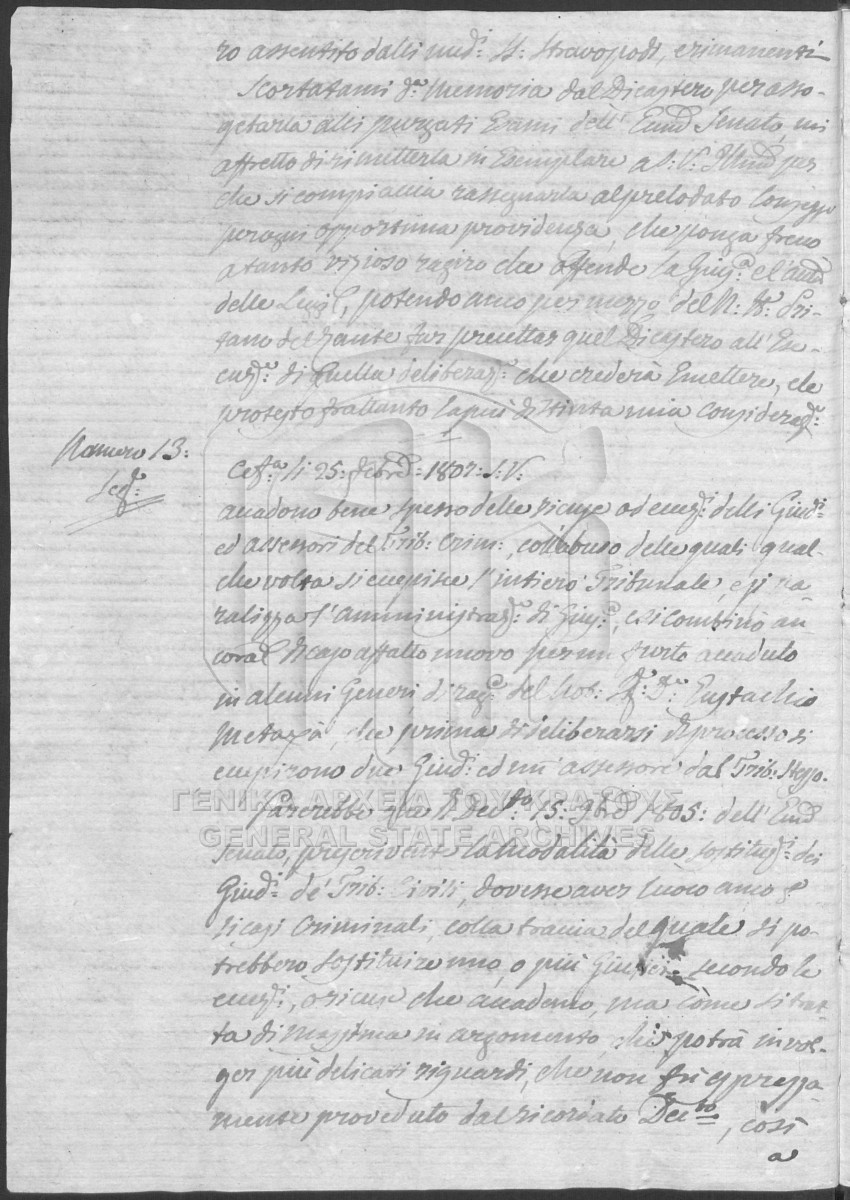 ro assentito dalli sud.i SS. Stravopodi, e rimanenti
Scortatami d.a Memoria dal Dicastero per asso-
getarla alli purgati Esami dell' Eccmo Senato, mi
affretto di rimetterla in Esemplare a S: V: Illma per
che si compiaccia rassegnarla al prelodato Consesso
per ogni opportuna providenza, che ponga freno
a tanto vizioso ragiro che offende la Giust.a e l'
delle Leggi, potendo anco per mezzo del N: H: Pri-
tano del Zante far precettar quel Dicastero all' Ese-
cuz.e di quella deliberaz.e che crederà Emettere, e le
protesto frattanto la più distinta mia Consideraz.e:
Numero 13:
Seg.
Ceff.a li 25: Febr.o 1807: S: V:
accadono bene spesso delle ricuse od eccez.i delli Giud.i
ed assessori del Trib: Crim:, coll'abuso delle quali qual-
che volta si eccepisce l'intiero Tribunale, e si pa
ralizza l'amministraz.e di Giust.a, e si combinò an
cora il caso affatto nuovo per un furto accaduto
in alcuni Generi di rag.e del Nob: Eustachio
Metaxà, che prima di deliberarsi il processo si
eccepirono due Giud.i ed un' assessore dal Trib: stesso.
Parerebbe che il Dec.to 15: 9bre 1805: dell' Eccmo
Senato, prescrivente la modalità delle sostituz.i dei
Giud.i de' Trib: Civili, dovesse aver luoco anco p.
li casi Criminali, colla traccia del quale si po-
trebbero sostituire uno, o più Giudici secondo le
eccez.i, o ricuse che accadono, ma come si trat-
ta di massima in argomento, che potrà invol-
ger più delicati riguardi, che non fù espressa-
mente proveduto dal ricordato Dec.to, così
a